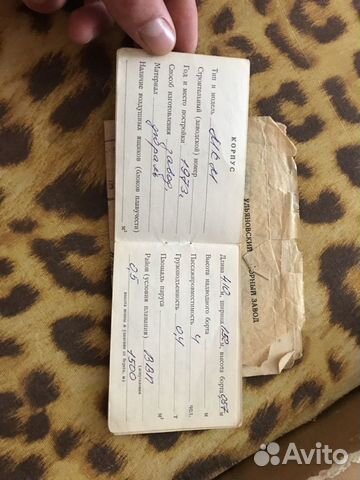 КОРПУС
Тип и модель МКМ
Строительный (заводской) номер
Год и место постройки 1973г
Способ изготовления завод
Материал дюраль
Наличие воздушных ящиков (блоков плавучести)
м³
Длина м, ширина м, высота борта м
Высота надводного борта м
Пассажировместимость 4 чел.
Грузоподъемность 0,4 т
Площадь паруса м²
Район (условия плавания) ВВП
0,5 1500
УЛЬЯНОВСКИЙ
ЗАВОД
Avito